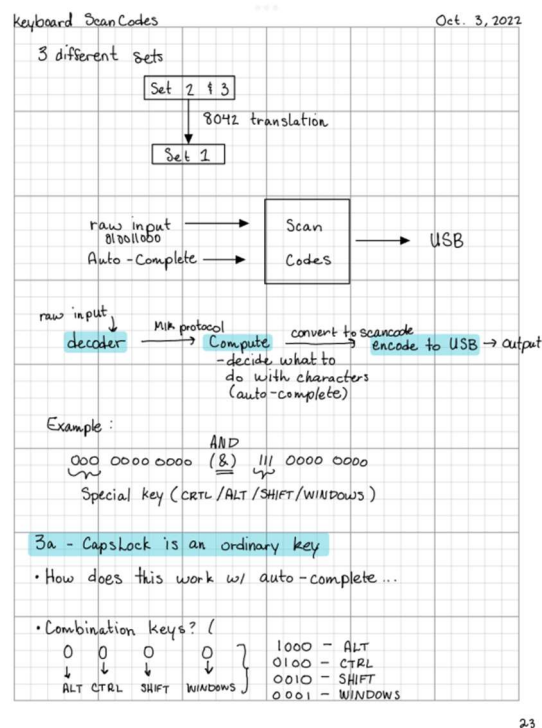 Keyboard Scan Codes Oct. 3, 2022
3 different sets
Set 2 & 3
8042 translation
Set 1
raw input
010011000
Auto-Complete
Scan
Codes
USB
raw input
decoder
MIK protocol
Compute
convert to scancode
encode to USB → output
-decide what to
do with characters
(auto-complete)
Example:
AND
000 0000 0000 (&) 111 0000 0000
Special key (CRTL/ALT/SHIFT/WINDOWS)
3a - CapsLock is an ordinary key
• How does this work w/ auto-complete...
• Combination keys? (
0 0 0 0
ALT CTRL SHIFT WINDOWS
1000 - ALT
0100 - CTRL
0010 - SHIFT
0001 - WINDOWS
23